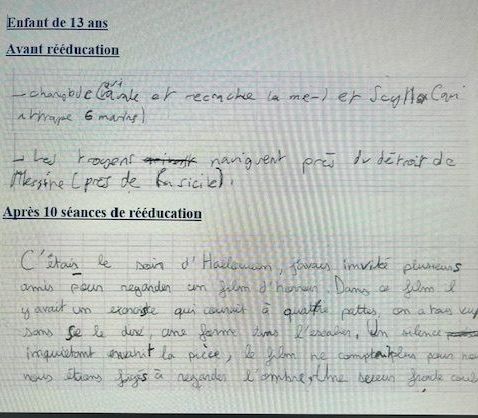 Enfant de 13 ans
Avant rééducation
- charybde (qui avale et recrache la mer) et Scylla (qui
attrape 6 marins)
- Les troyens naviguent près du détroit de
Messine (près de la sicile).
Après 10 séances de rééducation
C'étais le soir d'Halloween, j'avais invité plusieurs
amis pour regarder un film d'horreur. Dans ce film il
y avait un exorciste qui courait à quattre pattes, on a tous eu
sans se le dire, une forme dans l'escalier, Un silence
inquiétant envahit la pièce, le film ne comptait plus pour
nous étions figés à regarder l'ombre, Une sueur froide